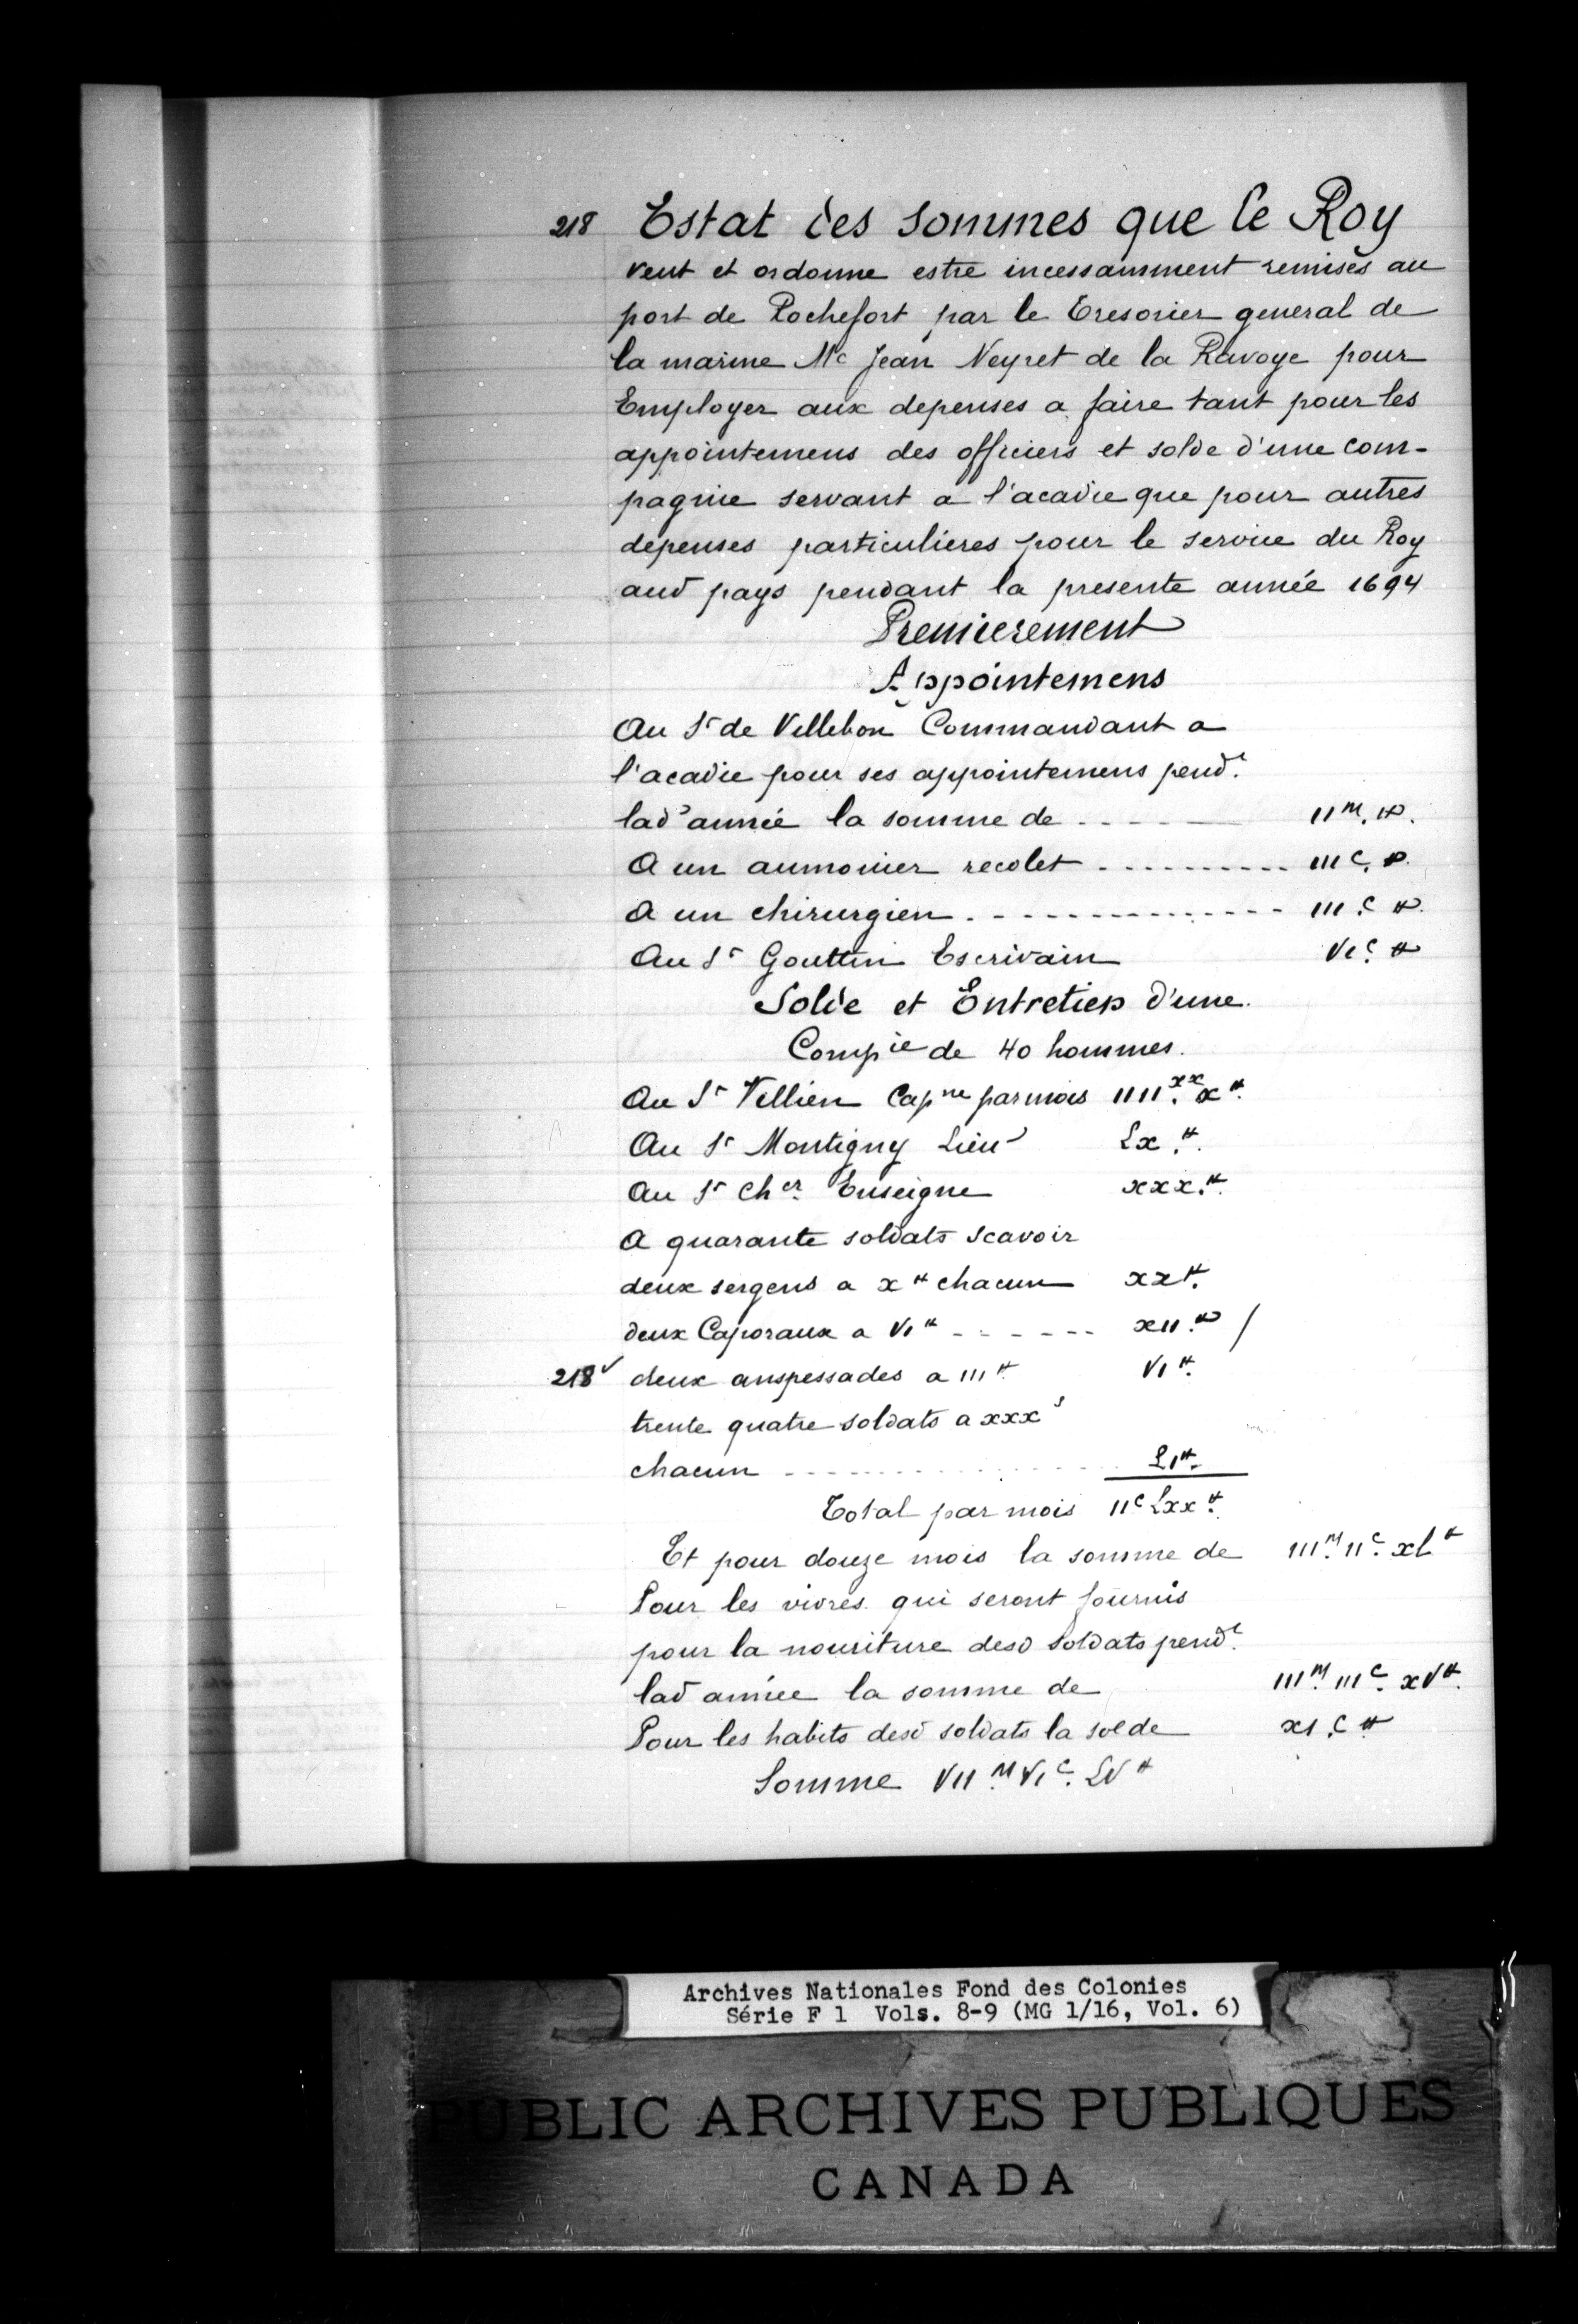 218 Estat des sommes que le Roy
veut et ordonne estre incessamment remises au
port de Rochefort par le Tresorier general de
la marine Me Jean Neyret de la Ravoye pour
Employer aux depenses a faire tant pour les
appointemens des officiers et solde d'une com-
pagnie servant a l'acadie que pour autres
depenses particulieres pour le service du Roy
aud pays pendant la presente année 1694
Premierement
Appointemens
Au Sr de Villebon Commandant a
l'acadie pour ses appointemens pendt
lad année la somme de - - - - IIM. ₶.
A un aumonier recolet - - - - - - - - - - IIIC. ₶.
A un chirurgien - - - - - - - - - - - - - - IIIC. ₶.
Au Sr Gouttin Escrivain VIC. ₶
Solde et Entretien d'une
Compie de 40 hommes.
Au Sr Villien Capne par mois IIIIxx. x ₶.
Au Sr Montigny Lieut Lx. ₶.
Au Sr Cher Enseigne xxx. ₶.
A quarante soldats scavoir
deux sergens a x ₶ chacun xx ₶.
deux Caporaux a VI ₶ - - - - - - xII. ₶ /
218v deux anspessades a III ₶. VI ₶.
trente quatre soldats a xxx s
chacun - - - - - - - - - - - - - - LI ₶.
Total par mois IIC Lxx ₶.
Et pour douze mois la somme de IIIM. IIC. xL ₶
Pour les vivres qui seront fournis
pour la nouriture desd soldats pendt
lad année la somme de IIIM. IIIC. xV ₶.
Pour les habits desd soldats la solde xI. C ₶
Somme VIIM. VIC. LV ₶
Archives Nationales Fond des Colonies
Série F 1 Vols. 8-9 (MG 1/16, Vol. 6)
PUBLIC ARCHIVES PUBLIQUES
CANADA